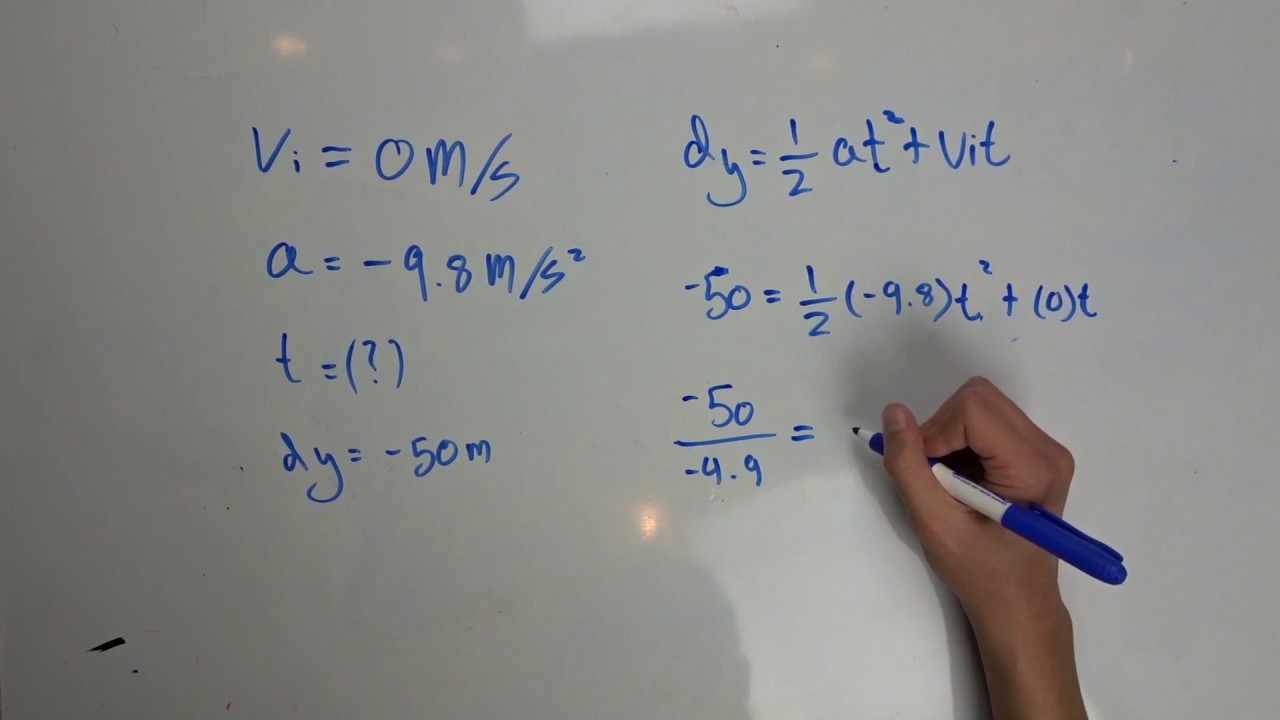 Vi = 0 m/s
a = -9.8 m/s²
t = (?)
dy = -50m
dy = 1/2 at² + Vit
-50 = 1/2 (-9.8)t² + (0)t
-50/-4.9 =